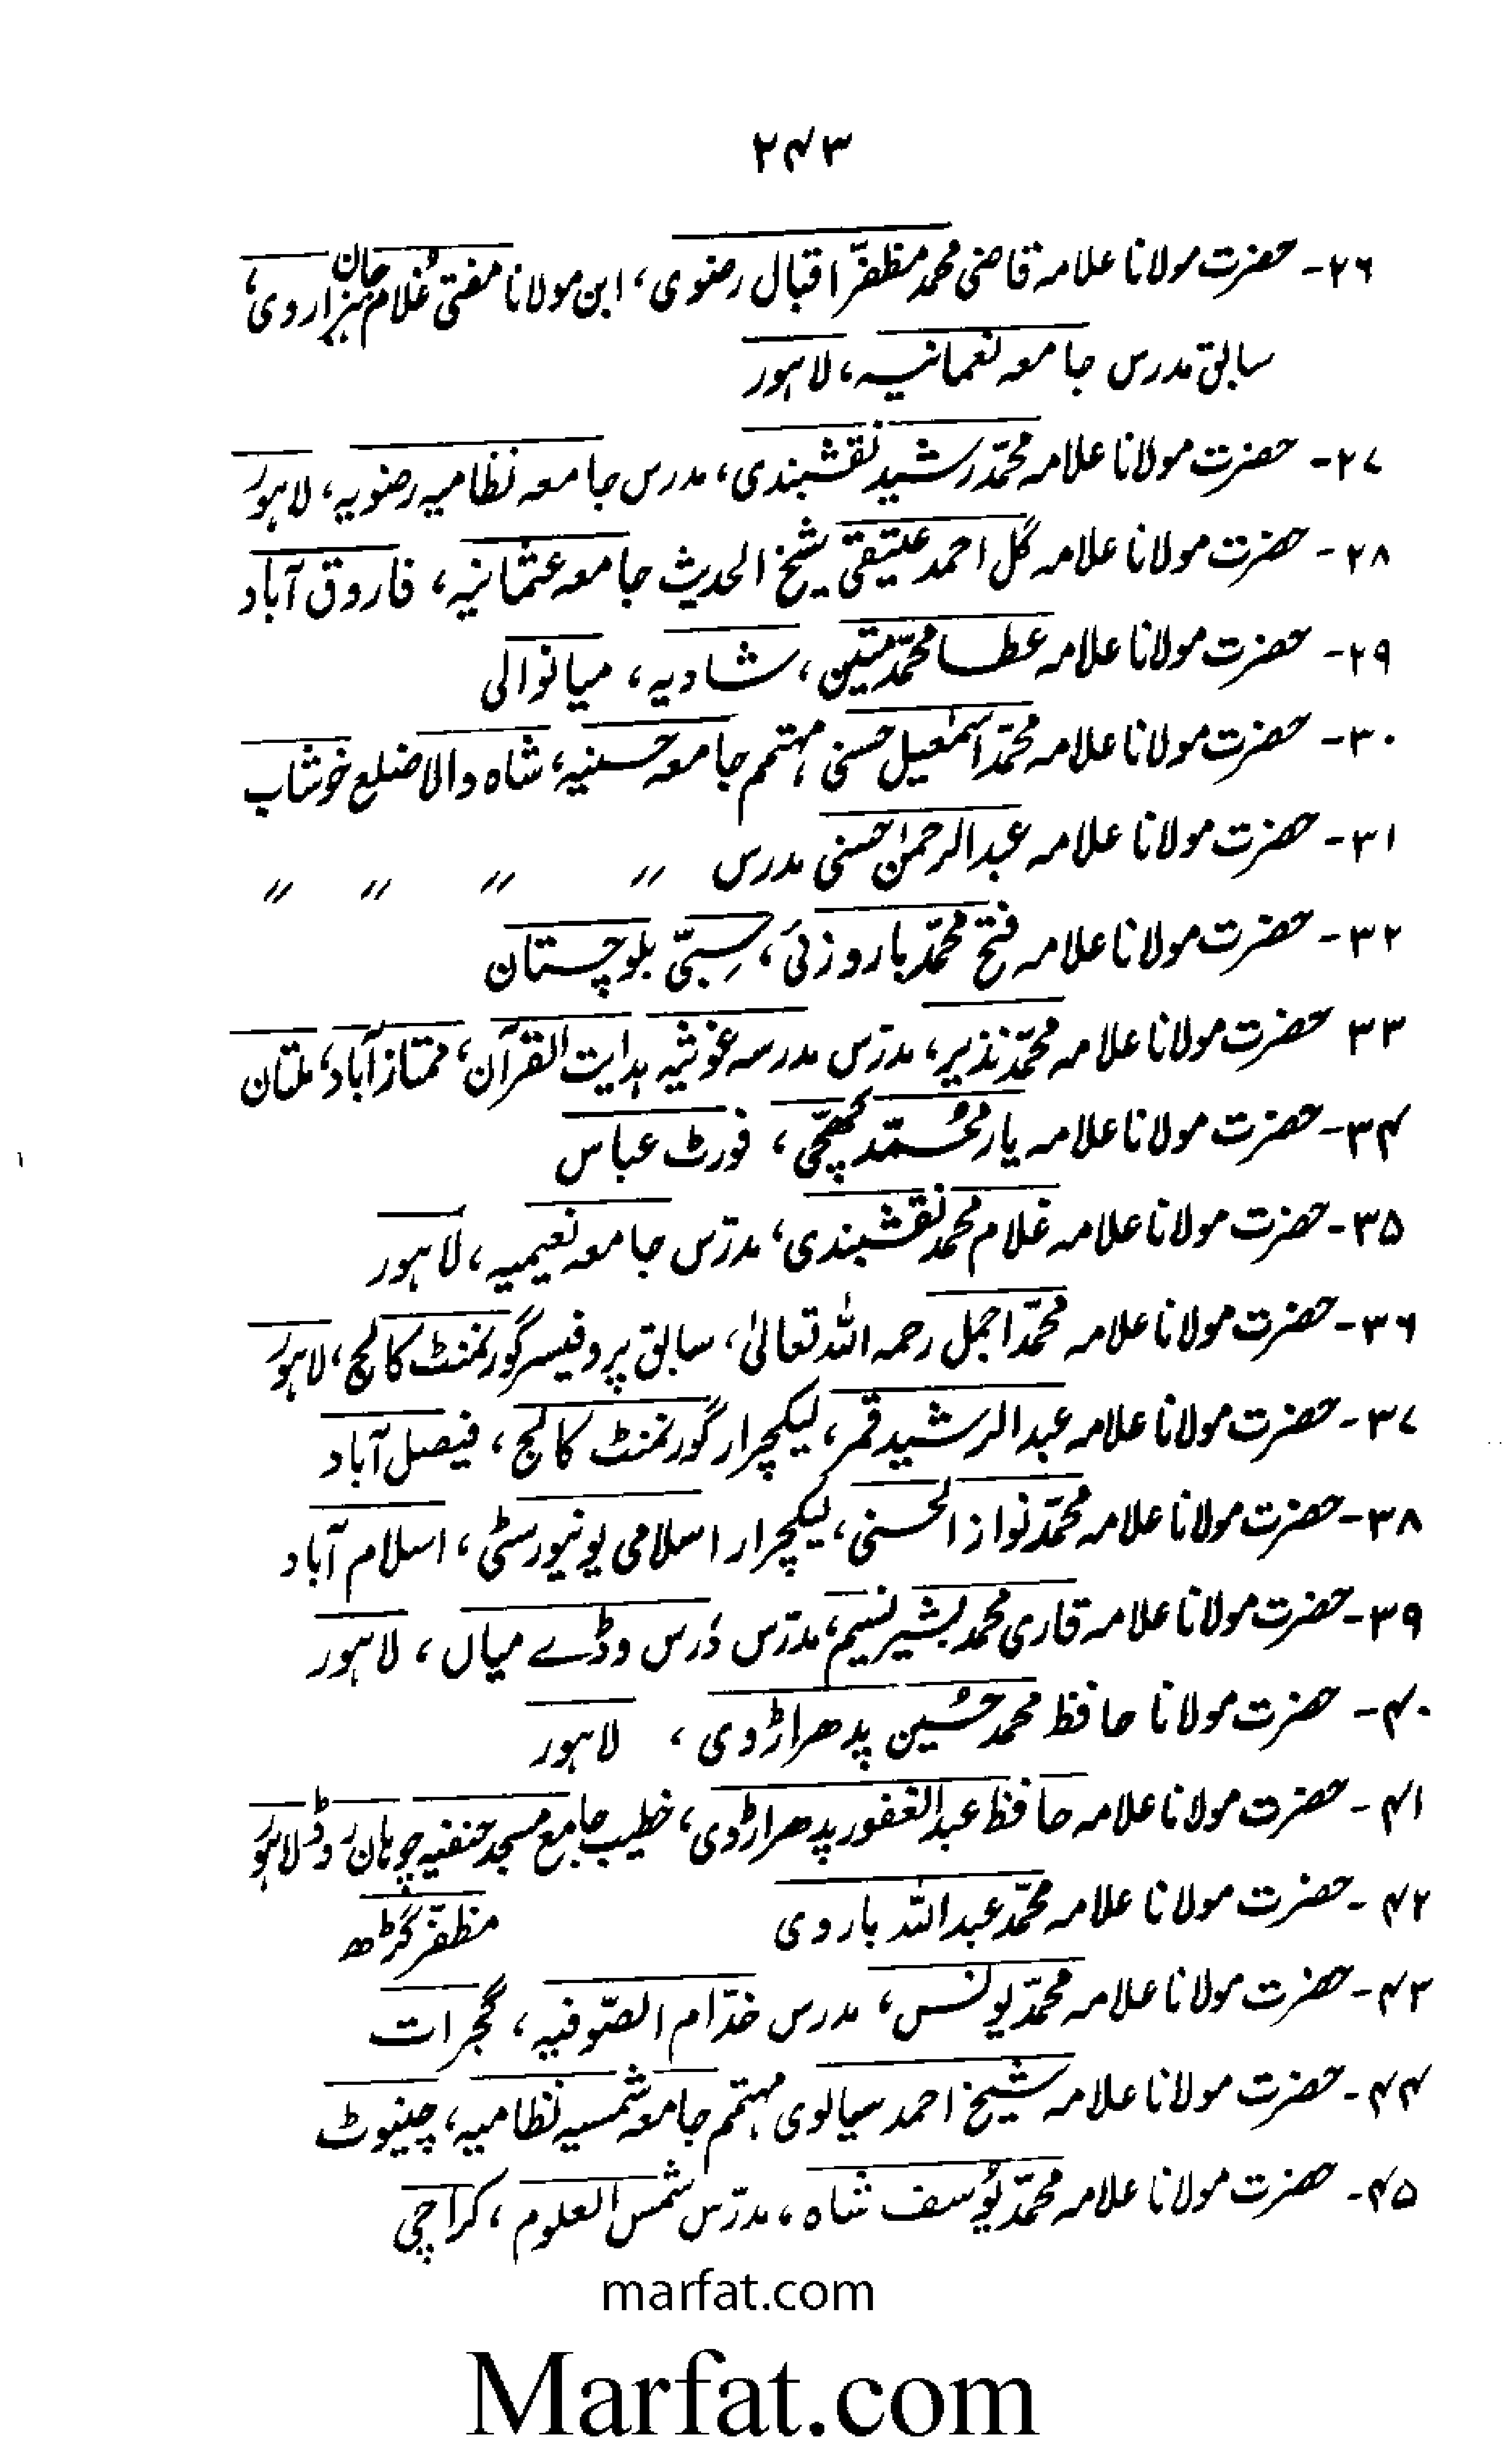 ۲۴۳
۲۶- حضرت مولانا علامہ قاضی محمد مظفّر اقبال رضوی، ابن مولانا مفتی غُلام جان ہزاروی،
سابق مدرس جامعہ نعمانیہ، لاہور
۲۷- حضرت مولانا علامہ محمّد رشید نقشبندی، مدرس جامعہ نظامیہ رضویہ، لاہور
۲۸- حضرت مولانا علامہ گل احمد عتیقی شیخ الحدیث جامعہ عثمانیہ، فاروق آباد
۲۹- حضرت مولانا علامہ عطا محمّد متین، شادیہ، میانوالی
۳۰- حضرت مولانا علامہ محمّد اسمٰعیل حسنی مہتمم جامعہ حسنیہ، شاہ والا ضلع خوشاب
۳۱- حضرت مولانا علامہ عبدالرحمٰن حسنی مدرس 〃 〃 〃 〃
۳۲- حضرت مولانا علامہ فتح محمّد باروزئی، سِبّی بلوچستان
۳۳ حضرت مولانا علامہ محمّد نذیر، مدرّس مدرسہ غوثیہ ہدایت القرآن، ممتاز آباد، ملتان
۳۴- حضرت مولانا علامہ یار محُمّد کھچّی، فورٹ عباس
۳۵- حضرت مولانا علامہ غلام محمد نقشبندی، مدرّس جامعہ نعیمیہ، لاہور
۳۶- حضرت مولانا علامہ محمّد اجمل رحمہ اللہ تعالیٰ، سابق پروفیسر گورنمنٹ کالج، لاہور
۳۷- حضرت مولانا علامہ عبدالرشید قمر، لیکچرار گورنمنٹ کالج، فیصل آباد
۳۸- حضرت مولانا علامہ محمّد نواز الحسنی، لیکچرار اسلامی یونیورسٹی، اسلام آباد
۳۹- حضرت مولانا علامہ قاری محمد بشیر نسیم، مدرّس دَرس وڈے میاں، لاہور
۴۰- حضرت مولانا حافظ محمد حُسین پدھراڑوی، لاہور
۴۱- حضرت مولانا علامہ حافظ عبدالغفور پدھراڑوی، خطیب جامع مسجد حنفیہ چوہان روڈ لاہور
۴۲- حضرت مولانا علامہ محمّد عبداللہ باروی مظفّر گڑھ
۴۳- حضرت مولانا علامہ محمّد یونس، مدرس خدّام الصّوفیہ، گجرات
۴۴- حضرت مولانا علامہ شیخ احمد سیالوی مہتمم جامعہ شمسیہ نظامیہ، چنیوٹ
۴۵- حضرت مولانا علامہ محمّد یُوسف شاہ، مدرّس شمس العلوم، کراچی
marfat.com
Marfat.com